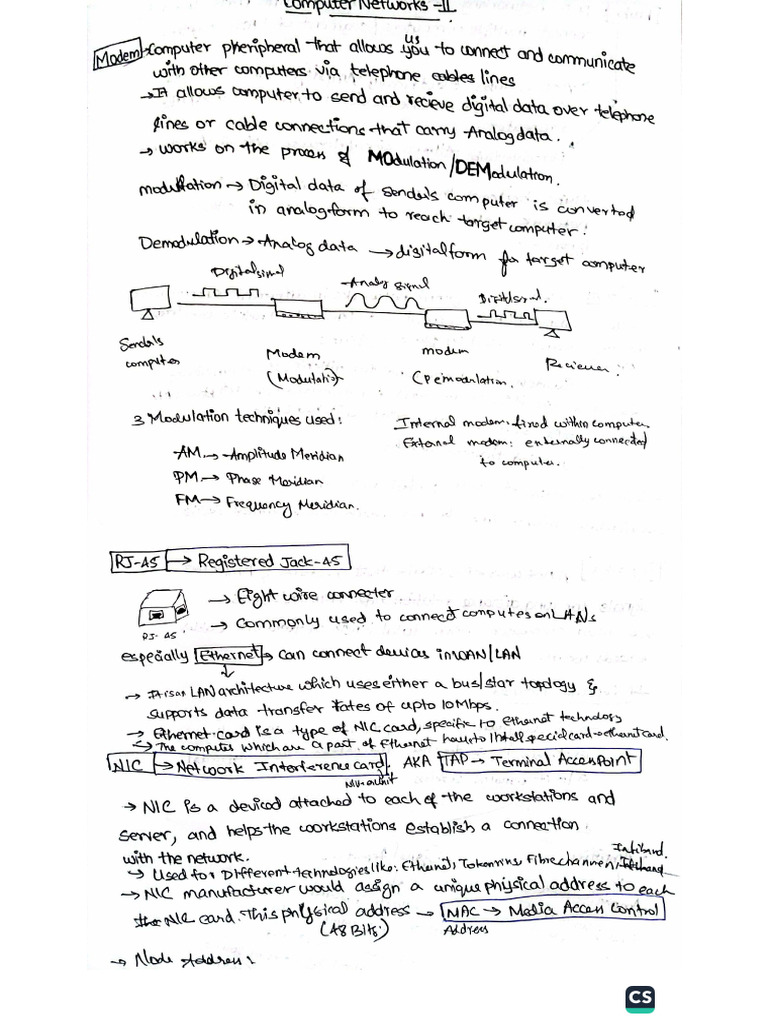 Computer Networks -II
Modem → Computer pheripheral that allows you us to connect and communicate
with other computers via telephone cables lines
→ It allows computer to send and recieve digital data over telephone
lines or cable connections that carry Analog data.
→ works on the process of MOdulation/DEModulation.
modulation → Digital data of sender's computer is converted
in analog form to reach target computer.
Demodulation → Analog data → digital form for target computer
Digital signal
Analog signal
Digital signal.
Sender's
computer
Modem
(Modulatio)
modem
(Demodulation.
Reciever.
3 Modulation techniques used:
AM → Amplitude Meridian
PM → Phase Meridian
FM → Frequency Meridian.
Internal modem: fixed within computer.
External modem: externally connected
to computer.
RJ-45 → Registered Jack-45
RJ-45
→ Eight wire connecter
→ Commonly used to connect computes on LANs
especially Ethernet → can connect devices in WAN/LAN
→ It is an LAN architecture which uses either a bus/star topology &
supports data transfer rates of upto 10 Mbps.
→ Ethernet card is a type of NIC card, specific to ethernet technology
→ The computes which are a part of Ethernet have to Install special card → ethernet card.
NIC → Network Interference card, AKA TAP → Terminal Access Point
→ NIC is a deviced attached to each of the workstations and
server, and helps the workstations establish a connection
with the network.
→ Used for Different technologies like: Ethernet, Token ring, Fibre channel, Infiband.
→ NIC manufacturer would assign a unique physical address to each
the NIC card. This physical address → MAC → Media Access Control
(48 Bits)
Address
→ Node Address:
CS